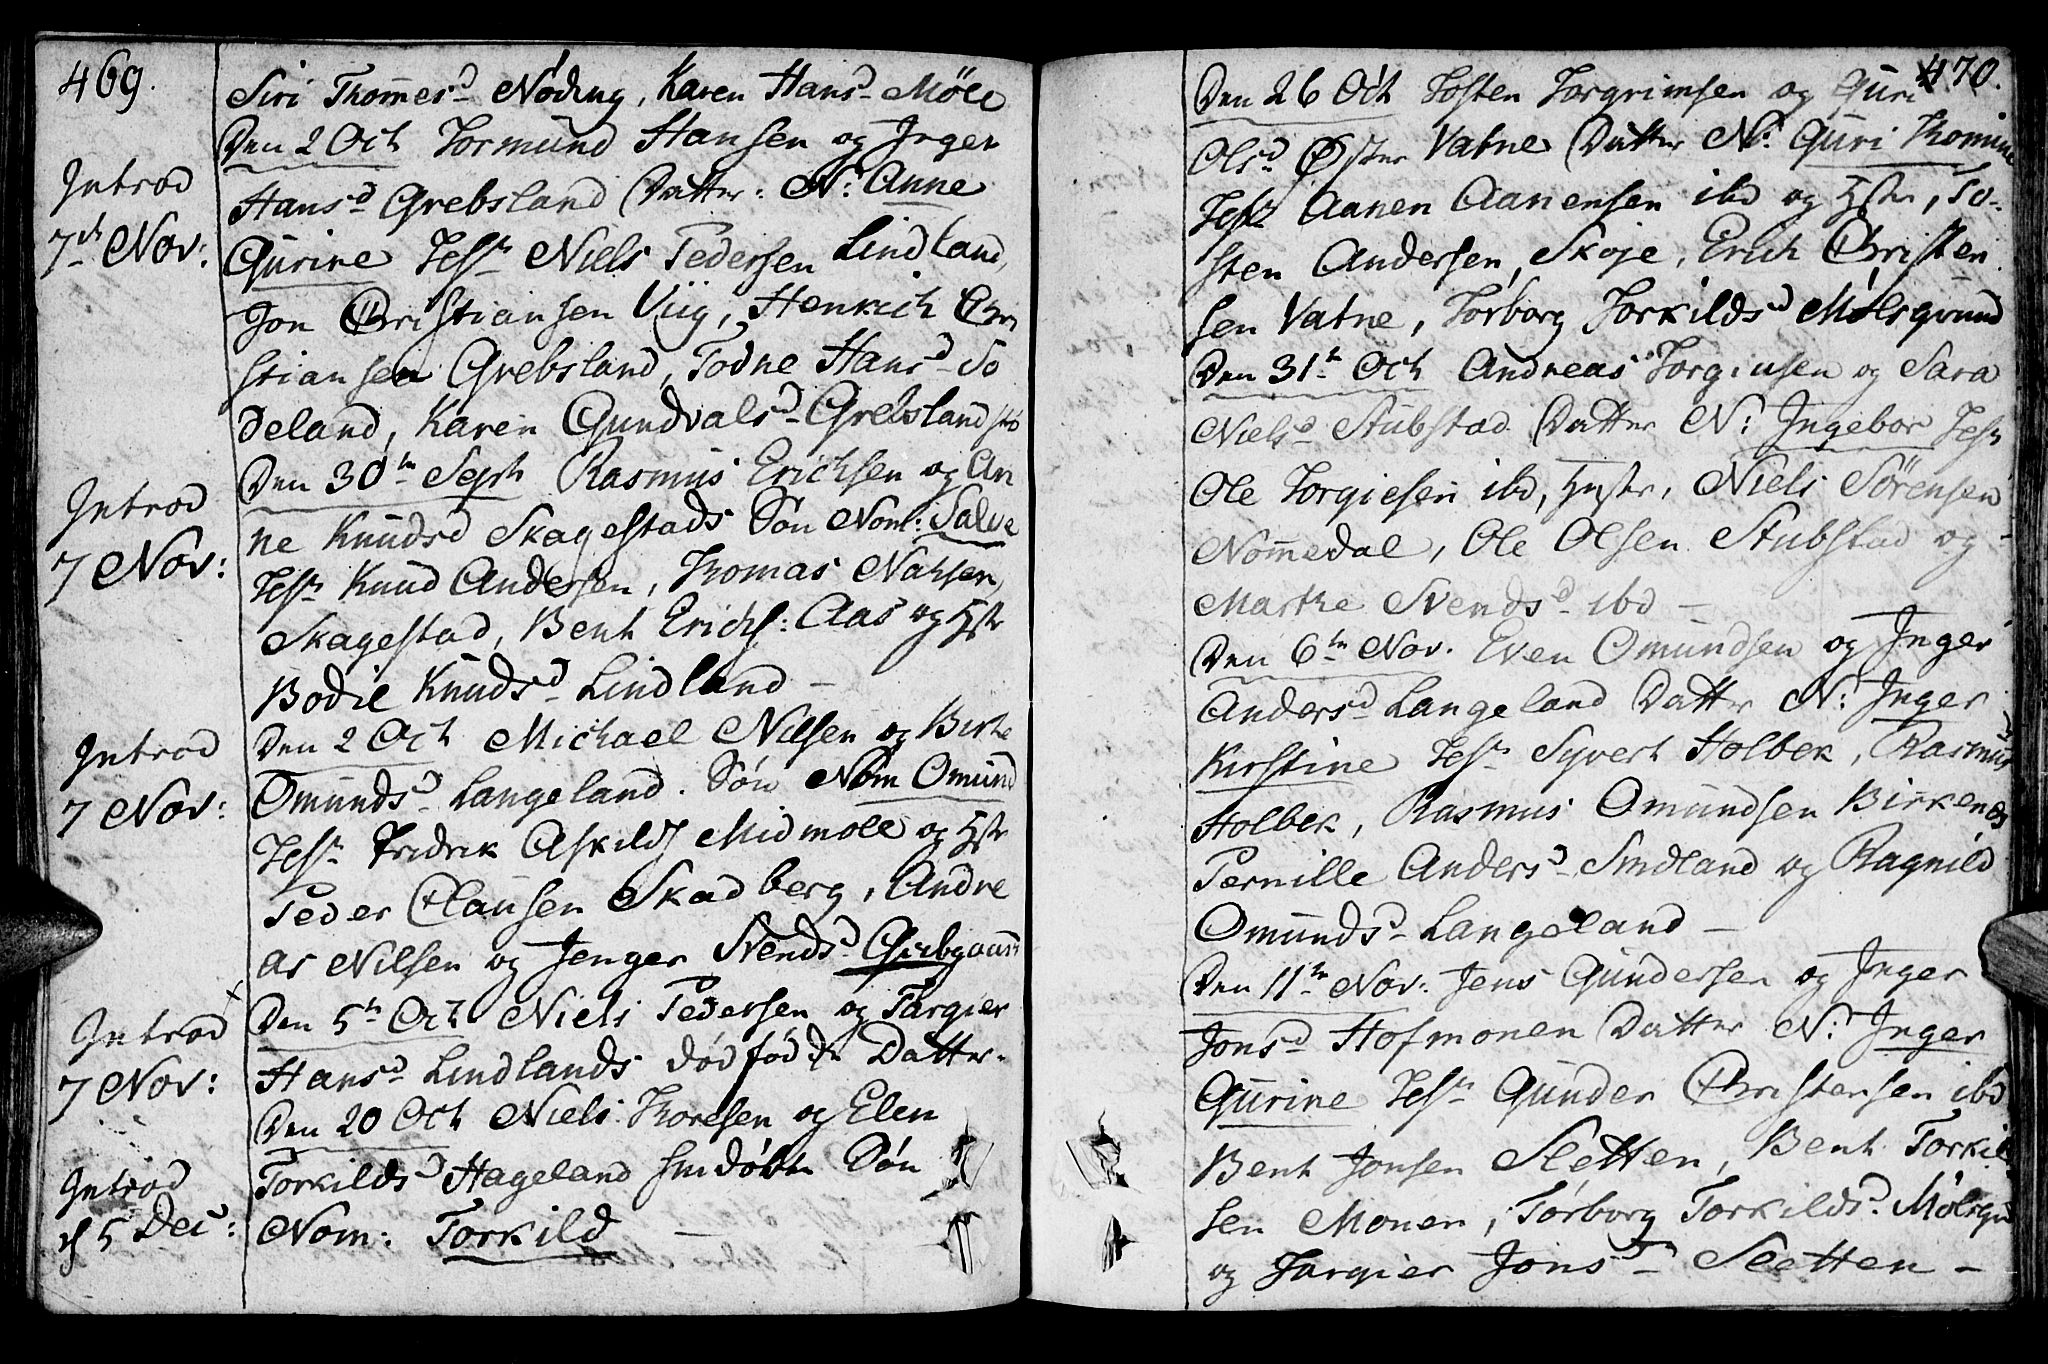 469.
Siri Thommesd Nøding, Karen Hansd Møll
Den 2 Och Tormund Hansen og Inger
Introd
Hansd Grebsland Datter: N: Anne
7de Nov:
Gurine Test Niels Pedersen Lindland,
Jon Christiansen Viig, Henrich Chri
stiansen Grebsland, Todne Hansd So
deland, Karen Gundvalsd Grebsland
Den 30te Sept Rasmus Erichsen og An
Introd
ne Knudsd Skagestads Søn Nom: Salve
7 Nov:
Testr Knud Andersen, Thomas Nahsen,
Skagestad, Bent Erichs: Aas og Hstr
Bodil Knudsd Lindland –
Den 2 Och Michael Nilsen og Birthe
Introd
Omunds d Langeland. Søn Nom Omund
7 Nov:
Testr Fredrik Askilds Midmoll og Hstr
Peder Clausen Skadberg, Andre
as Nilsen og Jenger Svendsd
Den 5te Och Niels Pedersen og Targier
Introd
Hansd Lindlands dødfødde Datter.
7 Nov:
Den 20 Och Niels Thoresen og Elen
Introd
Torkildsd Hageland hmdøbte Søn
d 5 Dec:
Nom: Torkild –
470.
Den 26 Och Tosten Torgrimsen og Guri
Olsd Øster Vatne Datter N: Guri Thomine
Testr Aanen Aanensen ibd og Hstr, To-
sten Andersen, Skoje, Erich Christen
sen Vatne, Torborg Torkildsd Mølsgrund
Den 31te Och Andreas Torgiusen og Sara
Nielsd Stubstad Datter N: Ingebor Testr
Ole Torgiesen ibd, Hustr, Niels Sörensen
Nommedal, Ole Olsen Stubstad og
Marthe Svendsd ibd –
Den 6te Nov. Even Omundsen og Inger
Andersd Langeland Datter N: Inger
Kirstine Testr Syvert Holbek, Rasmus
Holbek, Rasmus Omundsen Birkenes
Pernille Andersd Smdland og Ragnild
Omundsd Langeland –
Den 11te Nov: Jens Gundersen og Inger
Jonsd Hofmonen Datter N: Inger
Gurine Testr Gunder Christensen ibd
Bent Jonsen Sletten, Bent Torkil
sen Monen, Torborg Torkildsd Mølsgr
og Targier Jonsd Sletten –